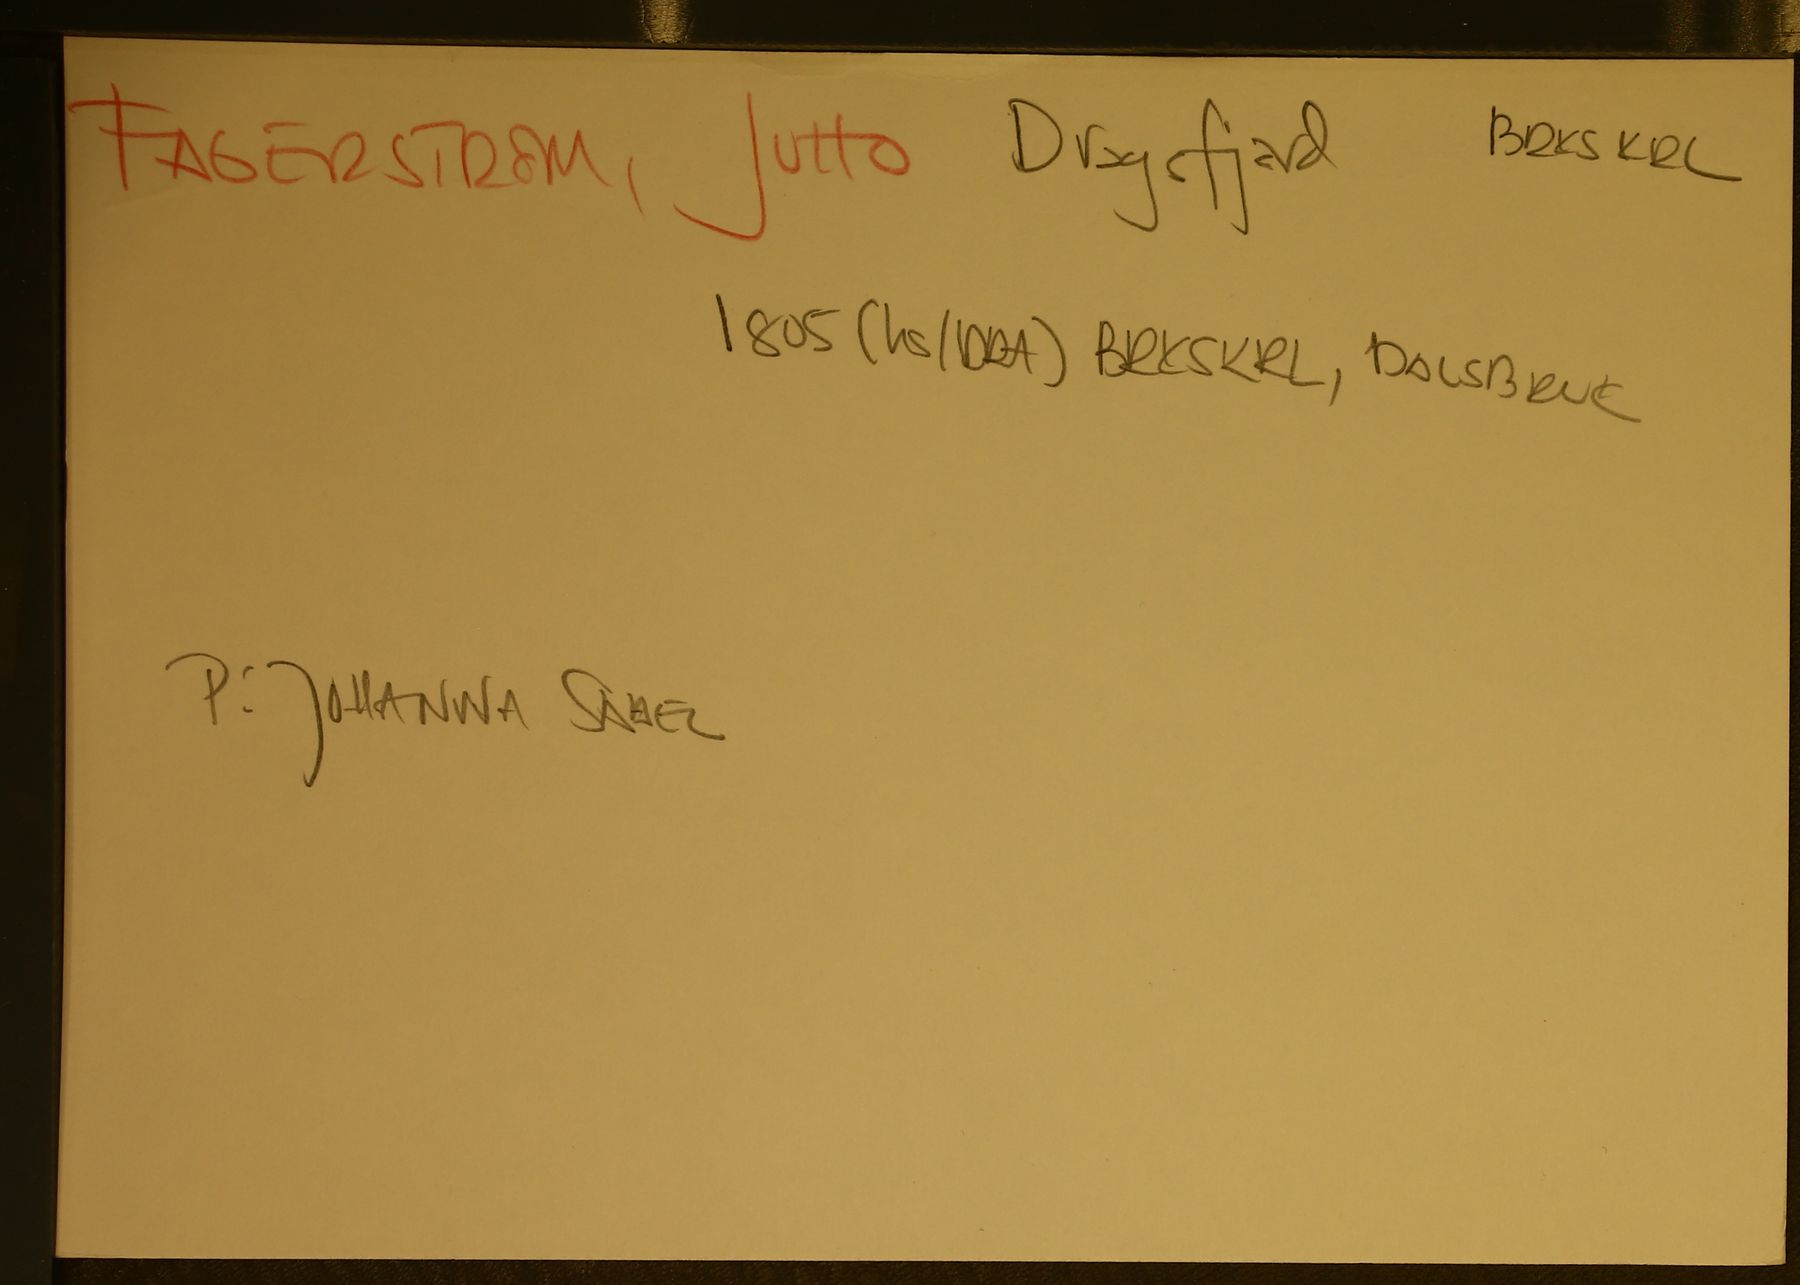 FAGERSTRÖM, Jutto Dragsfjärd BRKSKRL
1805 (hs/IDRA) BRKSKRL, DALSBRUK
P: JOHANNA